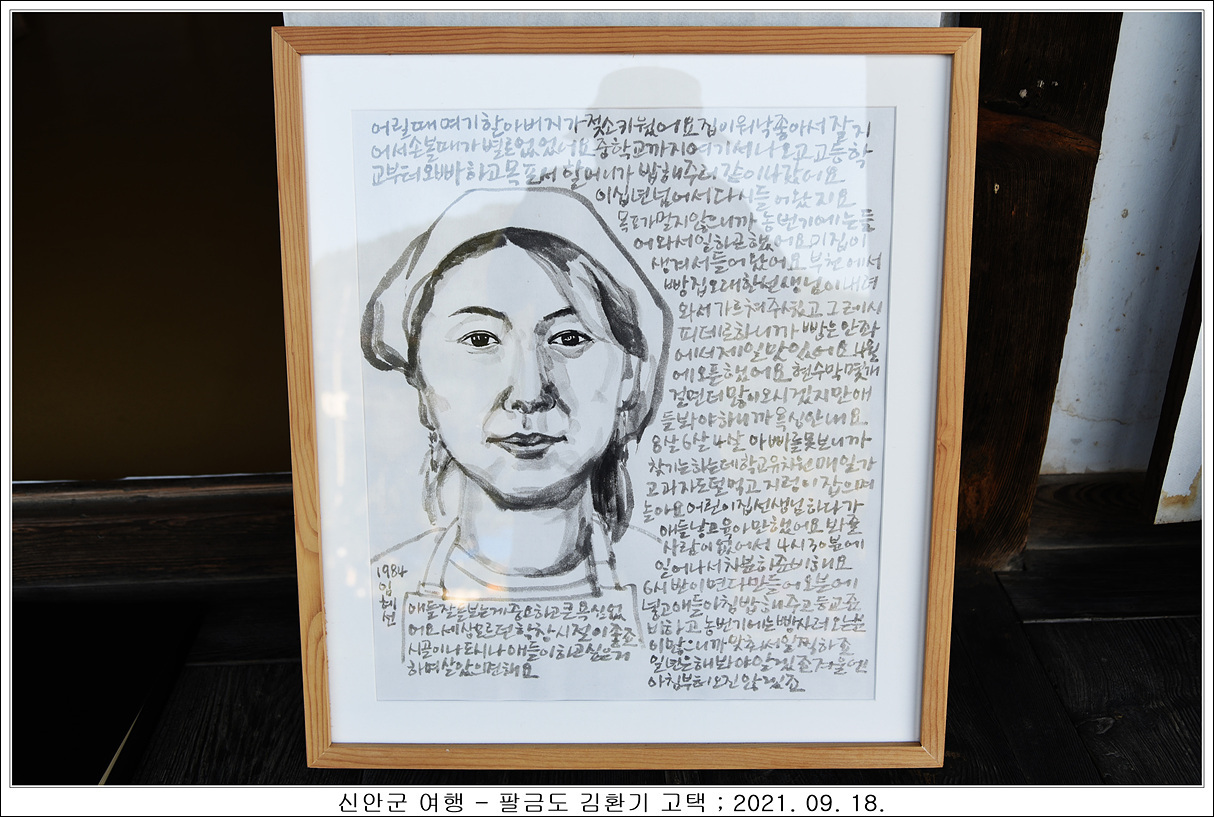 어릴때 여기 할아버지가 젖소키웠어요 집이 워낙 좋아서 잘 지
어서 손볼때가 별로 없었어요 중학교까지 여기서 나오고 고등학
교부터 오빠하고 목포서 할머니가 밥해주러 같이 나갔어요
이십년 넘어서 다시 들어왔지요
목포가 멀지 않으니까 농번기에는 들
어와서 일하곤 했어요 이집이
생겨서 들어왔어요 부천에서
빵집 오래한 선생님이 내려
와서 가르쳐 주셨고 그 레시
피대로 하니까 빵은 안좌
에서 제일 맛있어요 4월
에 오픈했어요 현수막 몇개
걸면 더 많이 오시겠지만 애
들 봐야 하니까 욕심안내요
8살 6살 4살 아빠를 못보니까
찾기는 하는데 학교 유치원 매일가
고 과자도 덜 먹고 지렁이 잡으며
놀아요 어린이집 선생님 하다가
애들 낳고 육아만 했어요 봐줄
사람이 없어서 4시 30분에
일어나서 차분히 준비해요
6시 반이면 다 만들어 오븐에
넣고 애들 아침밥 해주고 등교준
비하고 농번기에는 빵사러 오는분
이 많으니까 맞춰서 일찍하죠
일년은 해봐야 알겠죠 겨울엔
아침부터 오진 않겠죠
1984
임혜선
애들 잘 돌보는게 중요하고 큰 욕심 없
어요 세상 모르던 학창시절이 좋죠
시골이나 도시나 애들이 하고 싶은거
하며 살았으면 해요
신안군 여행 - 팔금도 김환기 고택 ; 2021. 09. 18.